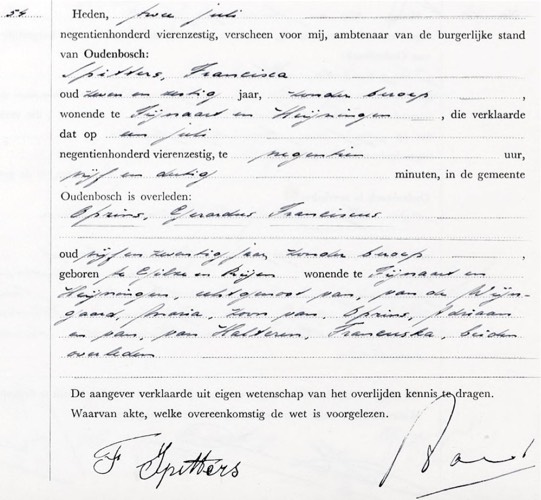 54 Heden, twee juli
negentienhonderd vierenzestig, verscheen voor mij, ambtenaar van de burgerlijke stand
van Oudenbosch:
Spitters, Francisca
oud zeven en dertig jaar, zonder beroep,
wonende te Fijnaart en Heijningen, die verklaarde
dat op een juli
negentienhonderd vierenzestig, te negentien uur,
vijf en dertig minuten, in de gemeente
Oudenbosch is overleden:
Oprins, Gerardus Franciscus
oud vijf en zestig jaar, zonder beroep,
geboren te Gilze en Rijen wonende te Fijnaart en
Heijningen, echtgenoot van, van de Wijn-
gaard, Maria, zoon van, Oprins, Adriaan
en van, van Halteren, Franciska, beiden
overleden
De aangever verklaarde uit eigen wetenschap van het overlijden kennis te dragen.
Waarvan akte, welke overeenkomstig de wet is voorgelezen.
F Spitters